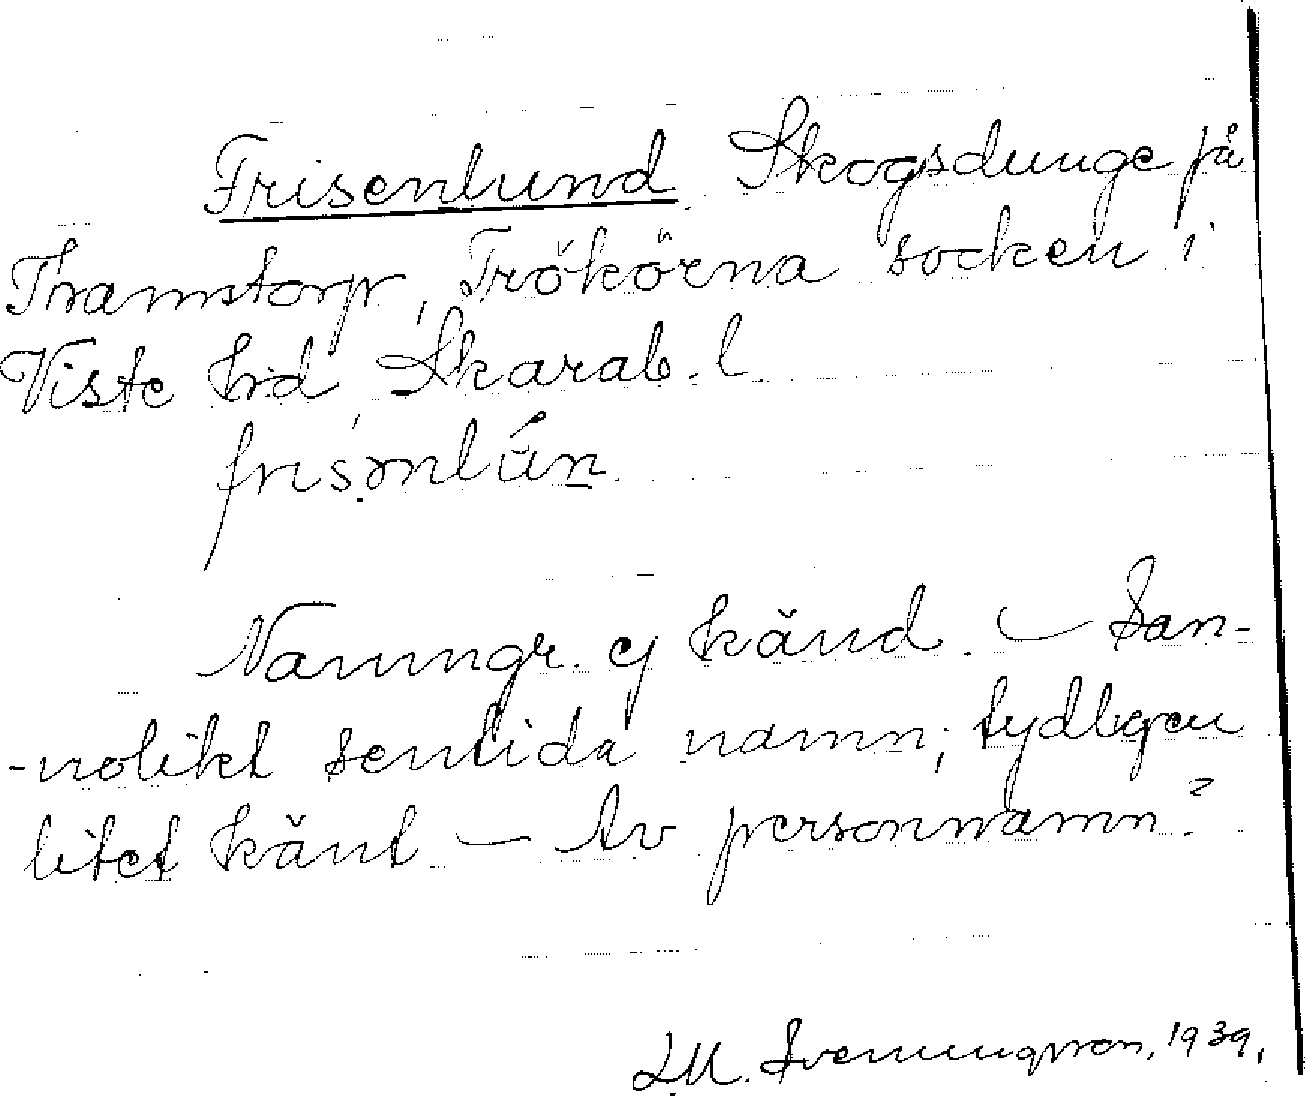 Frisenlund. Skogsdunge på
Tranmstorp, Trökörna socken i
Viste hd, Skarab. l
frisənlún
Namngr. ej känd. — San-
-nolikt sentida namn; tydligen
litet känt — Av personnamn?
LM. Svenungsson, 1939.